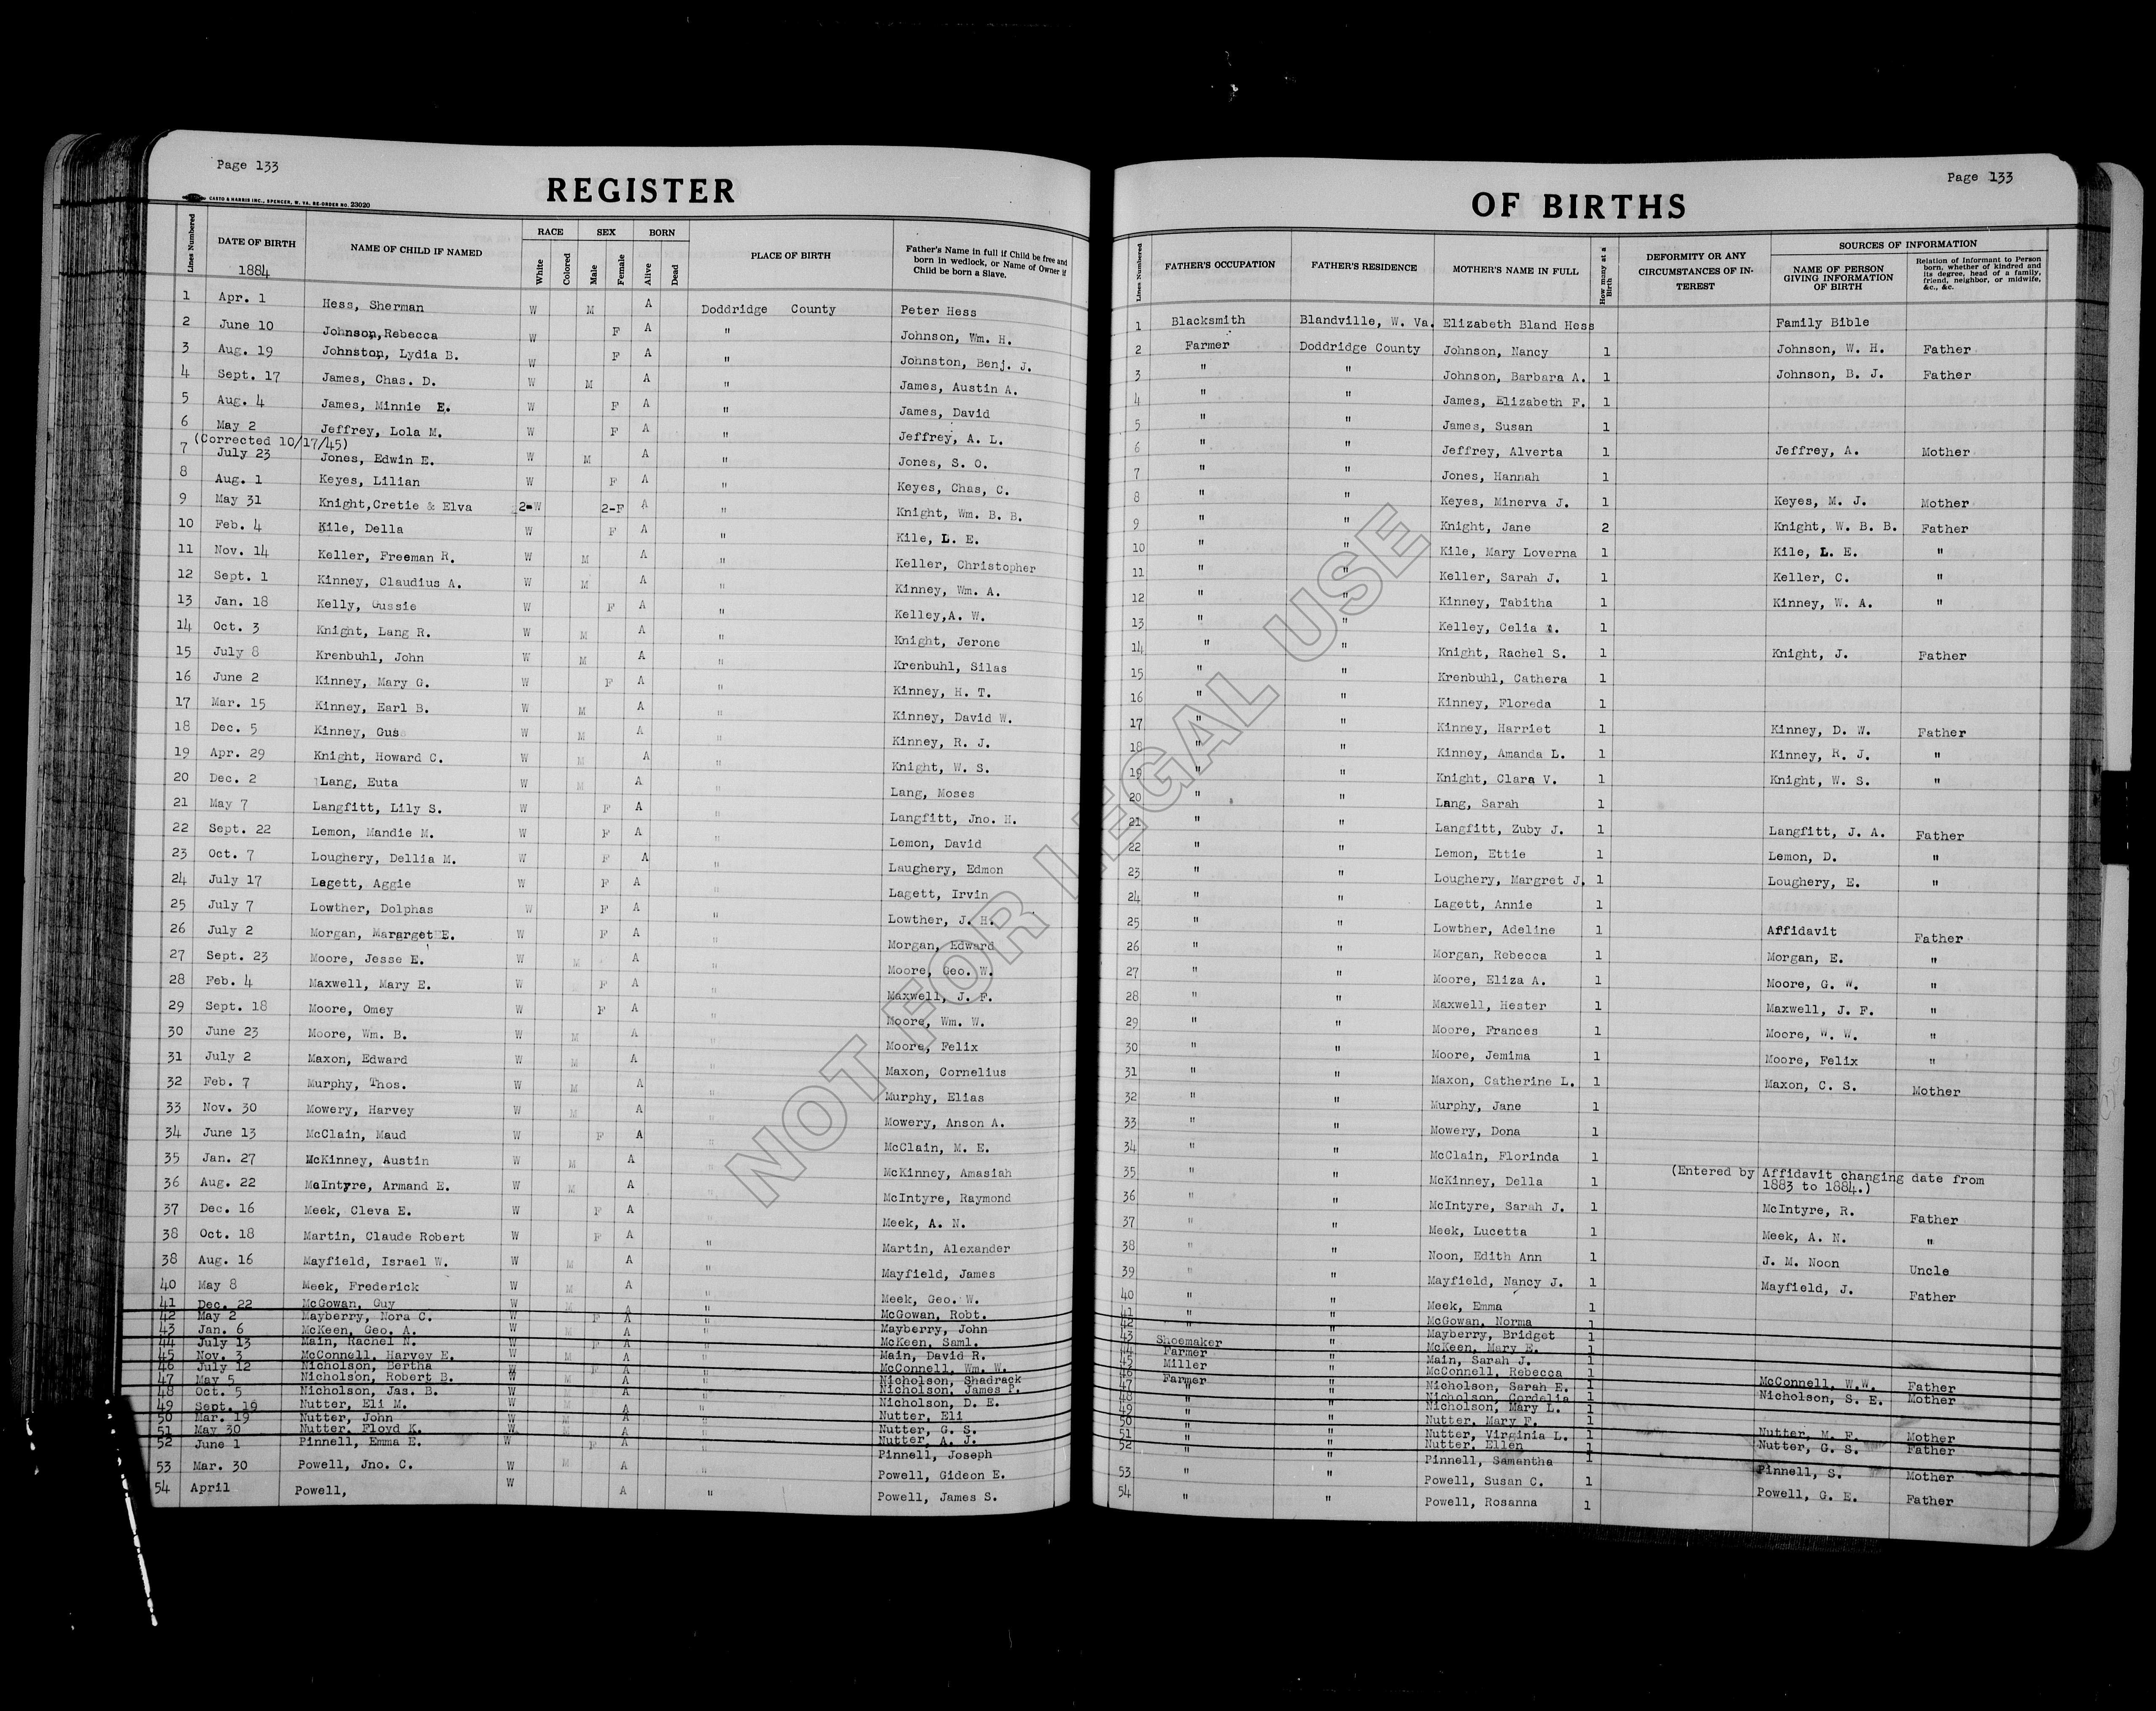 Page 133
REGISTER
CASTO & HARRIS INC., SPENCER, W. VA. RE-ORDER NO. 23020
Lines Numbered DATE OF BIRTH 1884 NAME OF CHILD IF NAMED RACE White Colored SEX Male Female BORN Alive Dead PLACE OF BIRTH Father's Name in full if Child be free and born in wedlock, or Name of Owner if Child be born a Slave.
1 Apr. 1 Hess, Sherman W M A Doddridge County Peter Hess
2 June 10 Johnson,Rebecca W F A " Johnson, Wm. H.
3 Aug. 19 Johnston, Lydia B. W F A " Johnston, Benj. J.
4 Sept. 17 James, Chas. D. W M A " James, Austin A.
5 Aug. 4 James, Minnie E. W F A " James, David
6 May 2 Jeffrey, Lola M. W F A " Jeffrey, A. L.
(Corrected 10/17/45)
7 July 23 Jones, Edwin E. W M A " Jones, S. O.
8 Aug. 1 Keyes, Lilian W F A " Keyes, Chas, C.
9 May 31 Knight,Cretie & Elva 2-W 2-F A " Knight, Wm. B. B.
10 Feb. 4 Kile, Della W F A " Kile, L. E.
11 Nov. 14 Keller, Freeman R. W M A " Keller, Christopher
12 Sept. 1 Kinney, Claudius A. W M A " Kinney, Wm. A.
13 Jan. 18 Kelly, Gussie W F A " Kelley,A. W.
14 Oct. 3 Knight, Lang R. W M A " Knight, Jerone
15 July 8 Krenbuhl, John W M A " Krenbuhl, Silas
16 June 2 Kinney, Mary G. W F A " Kinney, H. T.
17 Mar. 15 Kinney, Earl B. W M A " Kinney, David W.
18 Dec. 5 Kinney, Gus W M A " Kinney, R. J.
19 Apr. 29 Knight, Howard C. W M A " Knight, W. S.
20 Dec. 2 Lang, Euta W M A " Lang, Moses
21 May 7 Langfitt, Lily S. W F A " Langfitt, Jno. H.
22 Sept. 22 Lemon, Mandie M. W F A " Lemon, David
23 Oct. 7 Loughery, Dellia M. W F A " Laughery, Edmon
24 July 17 Lagett, Aggie W F A " Lagett, Irvin
25 July 7 Lowther, Dolphas W F A " Lowther, J. H.
26 July 2 Morgan, Mararget E. W F A " Morgan, Edward
27 Sept. 23 Moore, Jesse E. W M A " Moore, Geo. W.
28 Feb. 4 Maxwell, Mary E. W F A " Maxwell, J. F.
29 Sept. 18 Moore, Omey W F A " Moore, Wm. W.
30 June 23 Moore, Wm. B. W M A " Moore, Felix
31 July 2 Maxon, Edward W M A " Maxon, Cornelius
32 Feb. 7 Murphy, Thos. W M A " Murphy, Elias
33 Nov. 30 Mowery, Harvey W M A " Mowery, Anson A.
34 June 13 McClain, Maud W F A " McClain, M. E.
35 Jan. 27 McKinney, Austin W M A " McKinney, Amasiah
36 Aug. 22 McIntyre, Armand E. W M A " McIntyre, Raymond
37 Dec. 16 Meek, Cleva E. W F A " Meek, A. N.
38 Oct. 18 Martin, Claude Robert W F A " Martin, Alexander
38 Aug. 16 Mayfield, Israel W. W M A " Mayfield, James
40 May 8 Meek, Frederick W M A " Meek, Geo. W.
41 Dec. 22 McGowan, Guy W M A " McGowan, Robt.
42 May 2 Mayberry, Nora C. W F A " Mayberry, John
43 Jan. 6 McKeen, Geo. A. W M A " McKeen, Saml.
44 July 13 Main, Rachel N. W F A " Main, David R.
45 Nov. 3 McConnell, Harvey E. W M A " McConnell, Wm. W.
46 July 12 Nicholson, Bertha W F A " Nicholson, Shadrack
47 May 5 Nicholson, Robert B. W M A " Nicholson, James P.
48 Oct. 5 Nicholson, Jas. B. W M A " Nicholson, D. E.
49 Sept. 19 Nutter, Eli M. W M A " Nutter, Eli
50 Mar. 19 Nutter, John W M A " Nutter, G. S.
51 May 30 Nutter, Floyd K. W M A " Nutter, A. J.
52 June 1 Pinnell, Emma E. W F A " Pinnell, Joseph
53 Mar. 30 Powell, Jno. C. W M A " Powell, Gideon E.
54 April Powell, W A " Powell, James S.
Page 133
OF BIRTHS
Lines Numbered FATHER'S OCCUPATION FATHER'S RESIDENCE MOTHER'S NAME IN FULL How many at a Birth DEFORMITY OR ANY CIRCUMSTANCES OF INTEREST SOURCES OF INFORMATION NAME OF PERSON GIVING INFORMATION OF BIRTH Relation of Informant to Person born, whether of kindred and its degree, head of a family, friend, neighbor, or midwife, &c., &c.
1 Blacksmith Blandville, W. Va. Elizabeth Bland Hess Family Bible
2 Farmer Doddridge County Johnson, Nancy 1 Johnson, W. H. Father
3 " " Johnson, Barbara A. 1 Johnson, B. J. Father
4 " " James, Elizabeth F. 1
5 " " James, Susan 1
6 " " Jeffrey, Alverta 1 Jeffrey, A. Mother
7 " " Jones, Hannah 1
8 " " Keyes, Minerva J. 1 Keyes, M. J. Mother
9 " " Knight, Jane 2 Knight, W. B. B. Father
10 " " Kile, Mary Loverna 1 Kile, L. E. "
11 " " Keller, Sarah J. 1 Keller, C. "
12 " " Kinney, Tabitha 1 Kinney, W. A. "
13 " " Kelley, Celia 1
14 " " Knight, Rachel S. 1 Knight, J. Father
15 " " Krenbuhl, Cathera 1
16 " " Kinney, Floreda 1
17 " " Kinney, Harriet 1 Kinney, D. W. Father
18 " " Kinney, Amanda L. 1 Kinney, R. J. "
19 " " Knight, Clara V. 1 Knight, W. S. "
20 " " Lang, Sarah 1
21 " " Langfitt, Zuby J. 1 Langfitt, J. A. Father
22 " " Lemon, Ettie 1 Lemon, D. "
23 " " Loughery, Margret J. 1 Loughery, E. "
24 " " Lagett, Annie 1
25 " " Lowther, Adeline 1 Affidavit Father
26 " " Morgan, Rebecca 1 Morgan, E. "
27 " " Moore, Eliza A. 1 Moore, G. W. "
28 " " Maxwell, Hester 1 Maxwell, J. F. "
29 " " Moore, Frances 1 Moore, W. W. "
30 " " Moore, Jemima 1 Moore, Felix "
31 " " Maxon, Catherine L. 1 Maxon, C. S. Mother
32 " " Murphy, Jane 1
33 " " Mowery, Dona 1
34 " " McClain, Florinda 1
35 " " McKinney, Della 1 (Entered by Affidavit changing date from 1883 to 1884.)
36 " " McIntyre, Sarah J. 1 McIntyre, R. Father
37 " " Meek, Lucetta 1 Meek, A. N. "
38 " " Noon, Edith Ann 1 J. M. Noon Uncle
39 " " Mayfield, Nancy J. 1 Mayfield, J. Father
40 " Meek, Emma 1
41 " " McGowan, Norma 1
42 " " Mayberry, Bridget 1
43 Shoemaker " McKeen, Mary E. 1
44 Farmer " Main, Sarah J. 1
45 Miller " McConnell, Rebecca 1 McConnell, W.W. Father
46 Farmer " Nicholson, Sarah E. 1 Nicholson, S. E. Mother
47 " " Nicholson, Cordelia 1
48 " " Nicholson, Mary L. 1
49 " " Nutter, Mary F. 1 Nutter, M. F. Mother
50 " " Nutter, Virginia L. 1 Nutter, G. S. Father
51 " " Nutter, Ellen 1
52 " " Pinnell, Samantha 1 Pinnell, S. Mother
53 " " Powell, Susan C. 1 Powell, G. E. Father
54 " " Powell, Rosanna 1
NOT FOR LEGAL USE